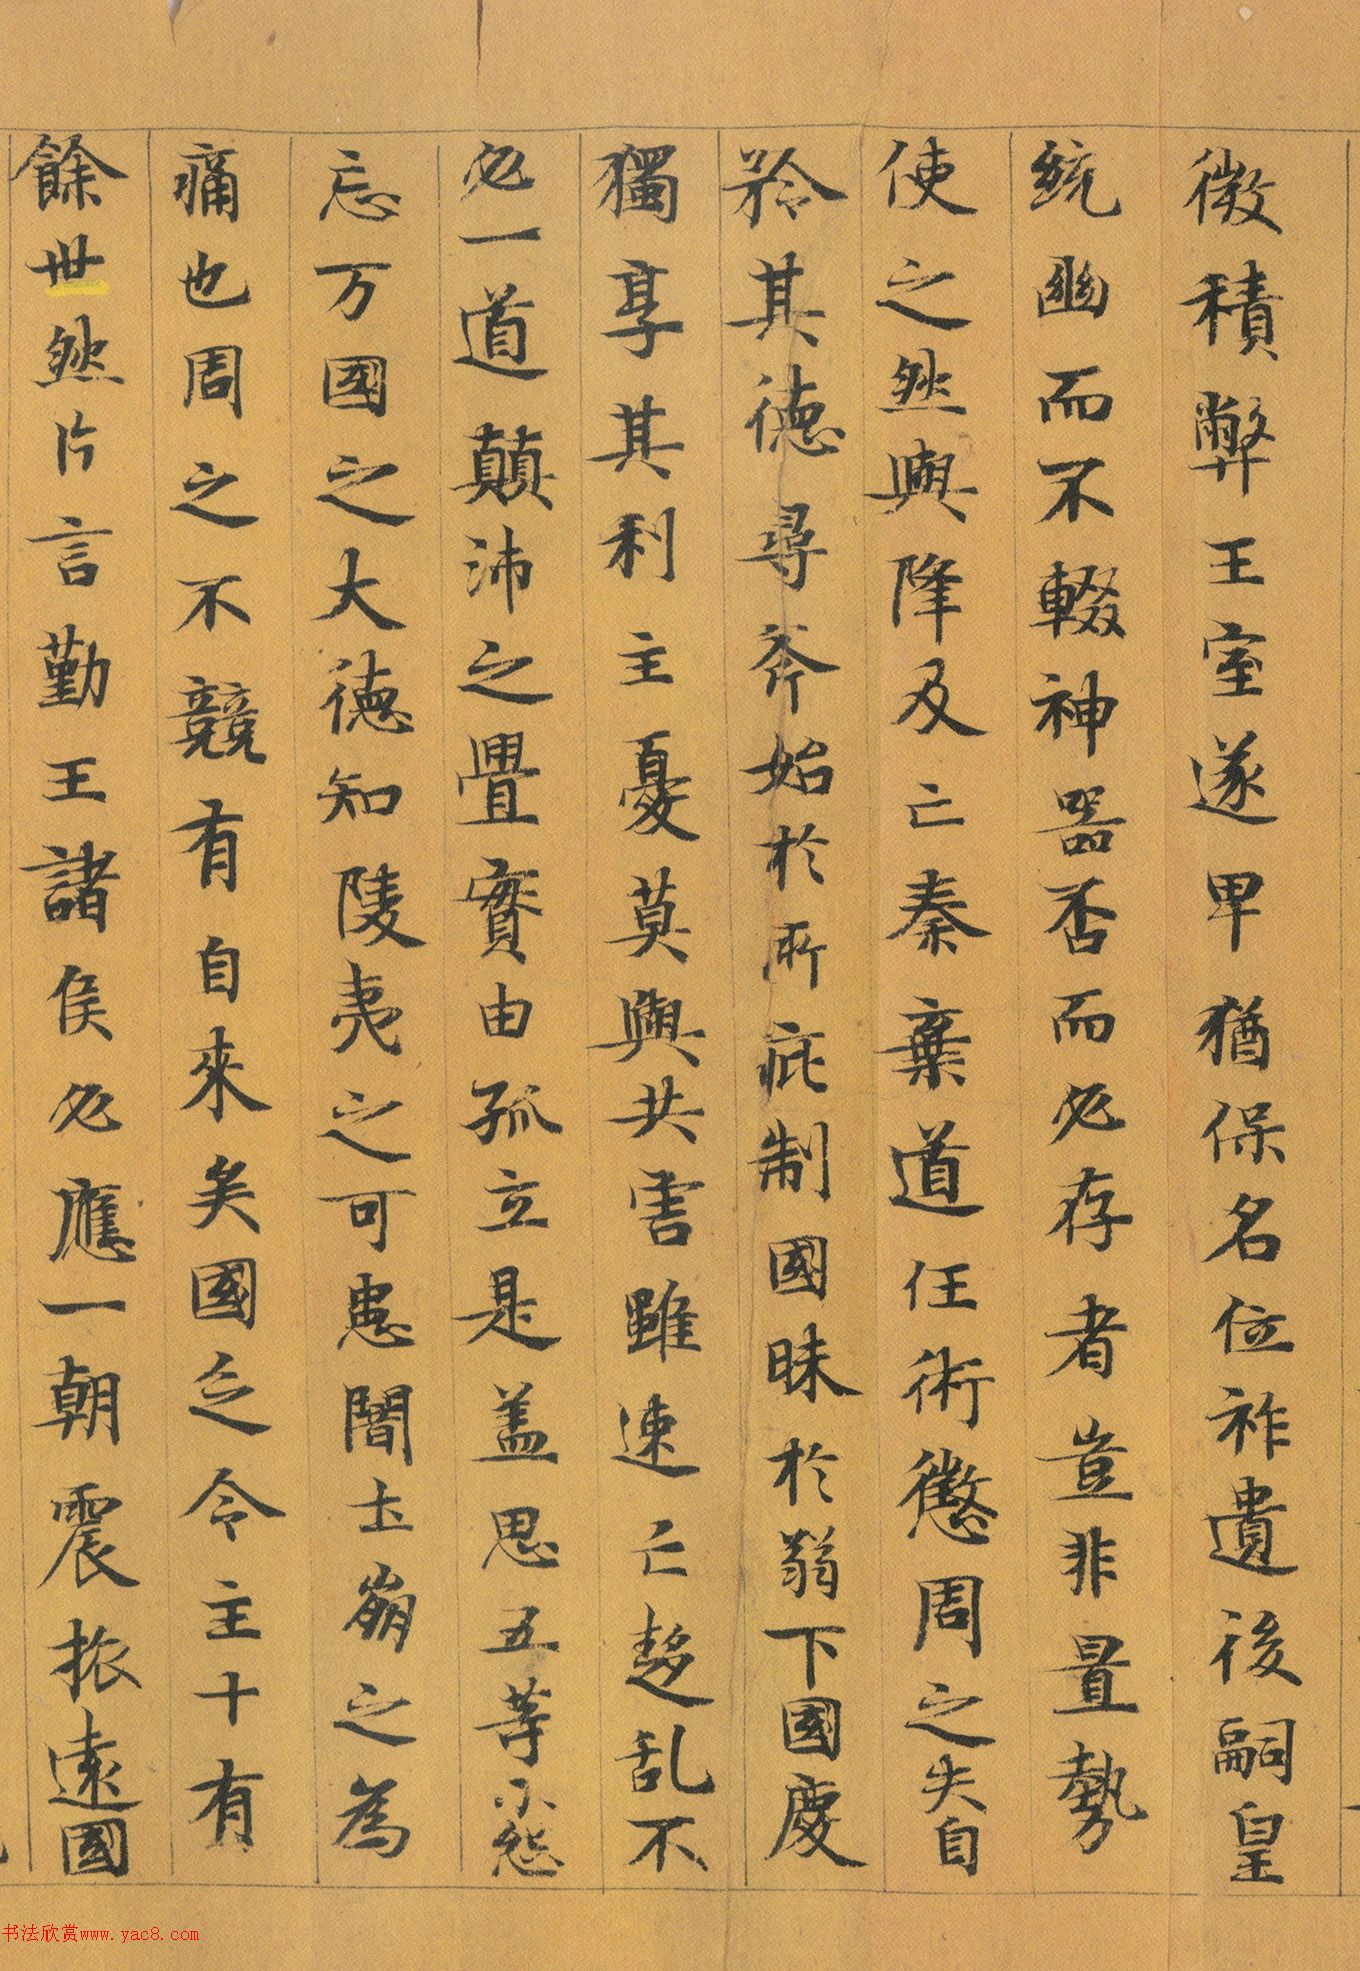 微積弊王室遂卑猶保名位祚遺後嗣皇
統幽而不輟神器否而必存者豈非置勢
使之然與降及亡秦棄道任術懲周之失自
矜其德尋斧始於所庇制國昧於弱下國慶
獨享其利主憂莫與共害雖速亡趍乱不
必一道顛沛之舋實由孤立是盖思五等小怨
忘万國之大德知陵夷之可患闇土崩之為
痛也周之不競有自來矣國乏令主十有
餘世然片言勤王諸侯必應一朝震振遠國
书法欣赏www.yac8.com